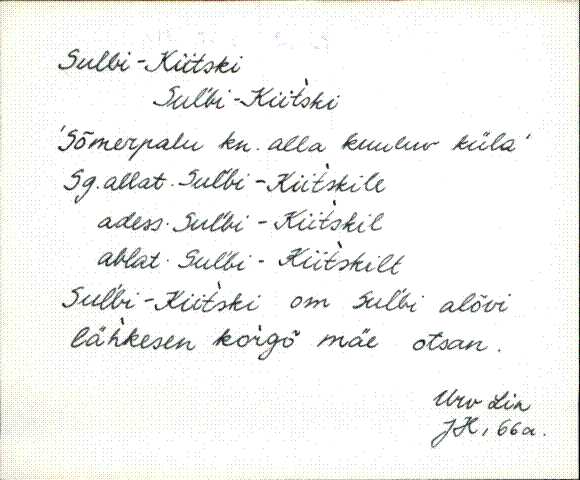 Sulbi-Kiitski
Sul'bi-Kiit̀ski
'Sõmerpalu kn. alla kuuluv küla'
Sg. allat. Sul'bi-Kiit̀skile
adess. Sul'bi - Kiit̀skil
ablat. Sul'bi - Kiit̀skilt
Sul'bi-Kiit̀ski om Sul'bi alõvi
lähkesen korgõ mäe otsan.
Urv Lin
JH, 66a.